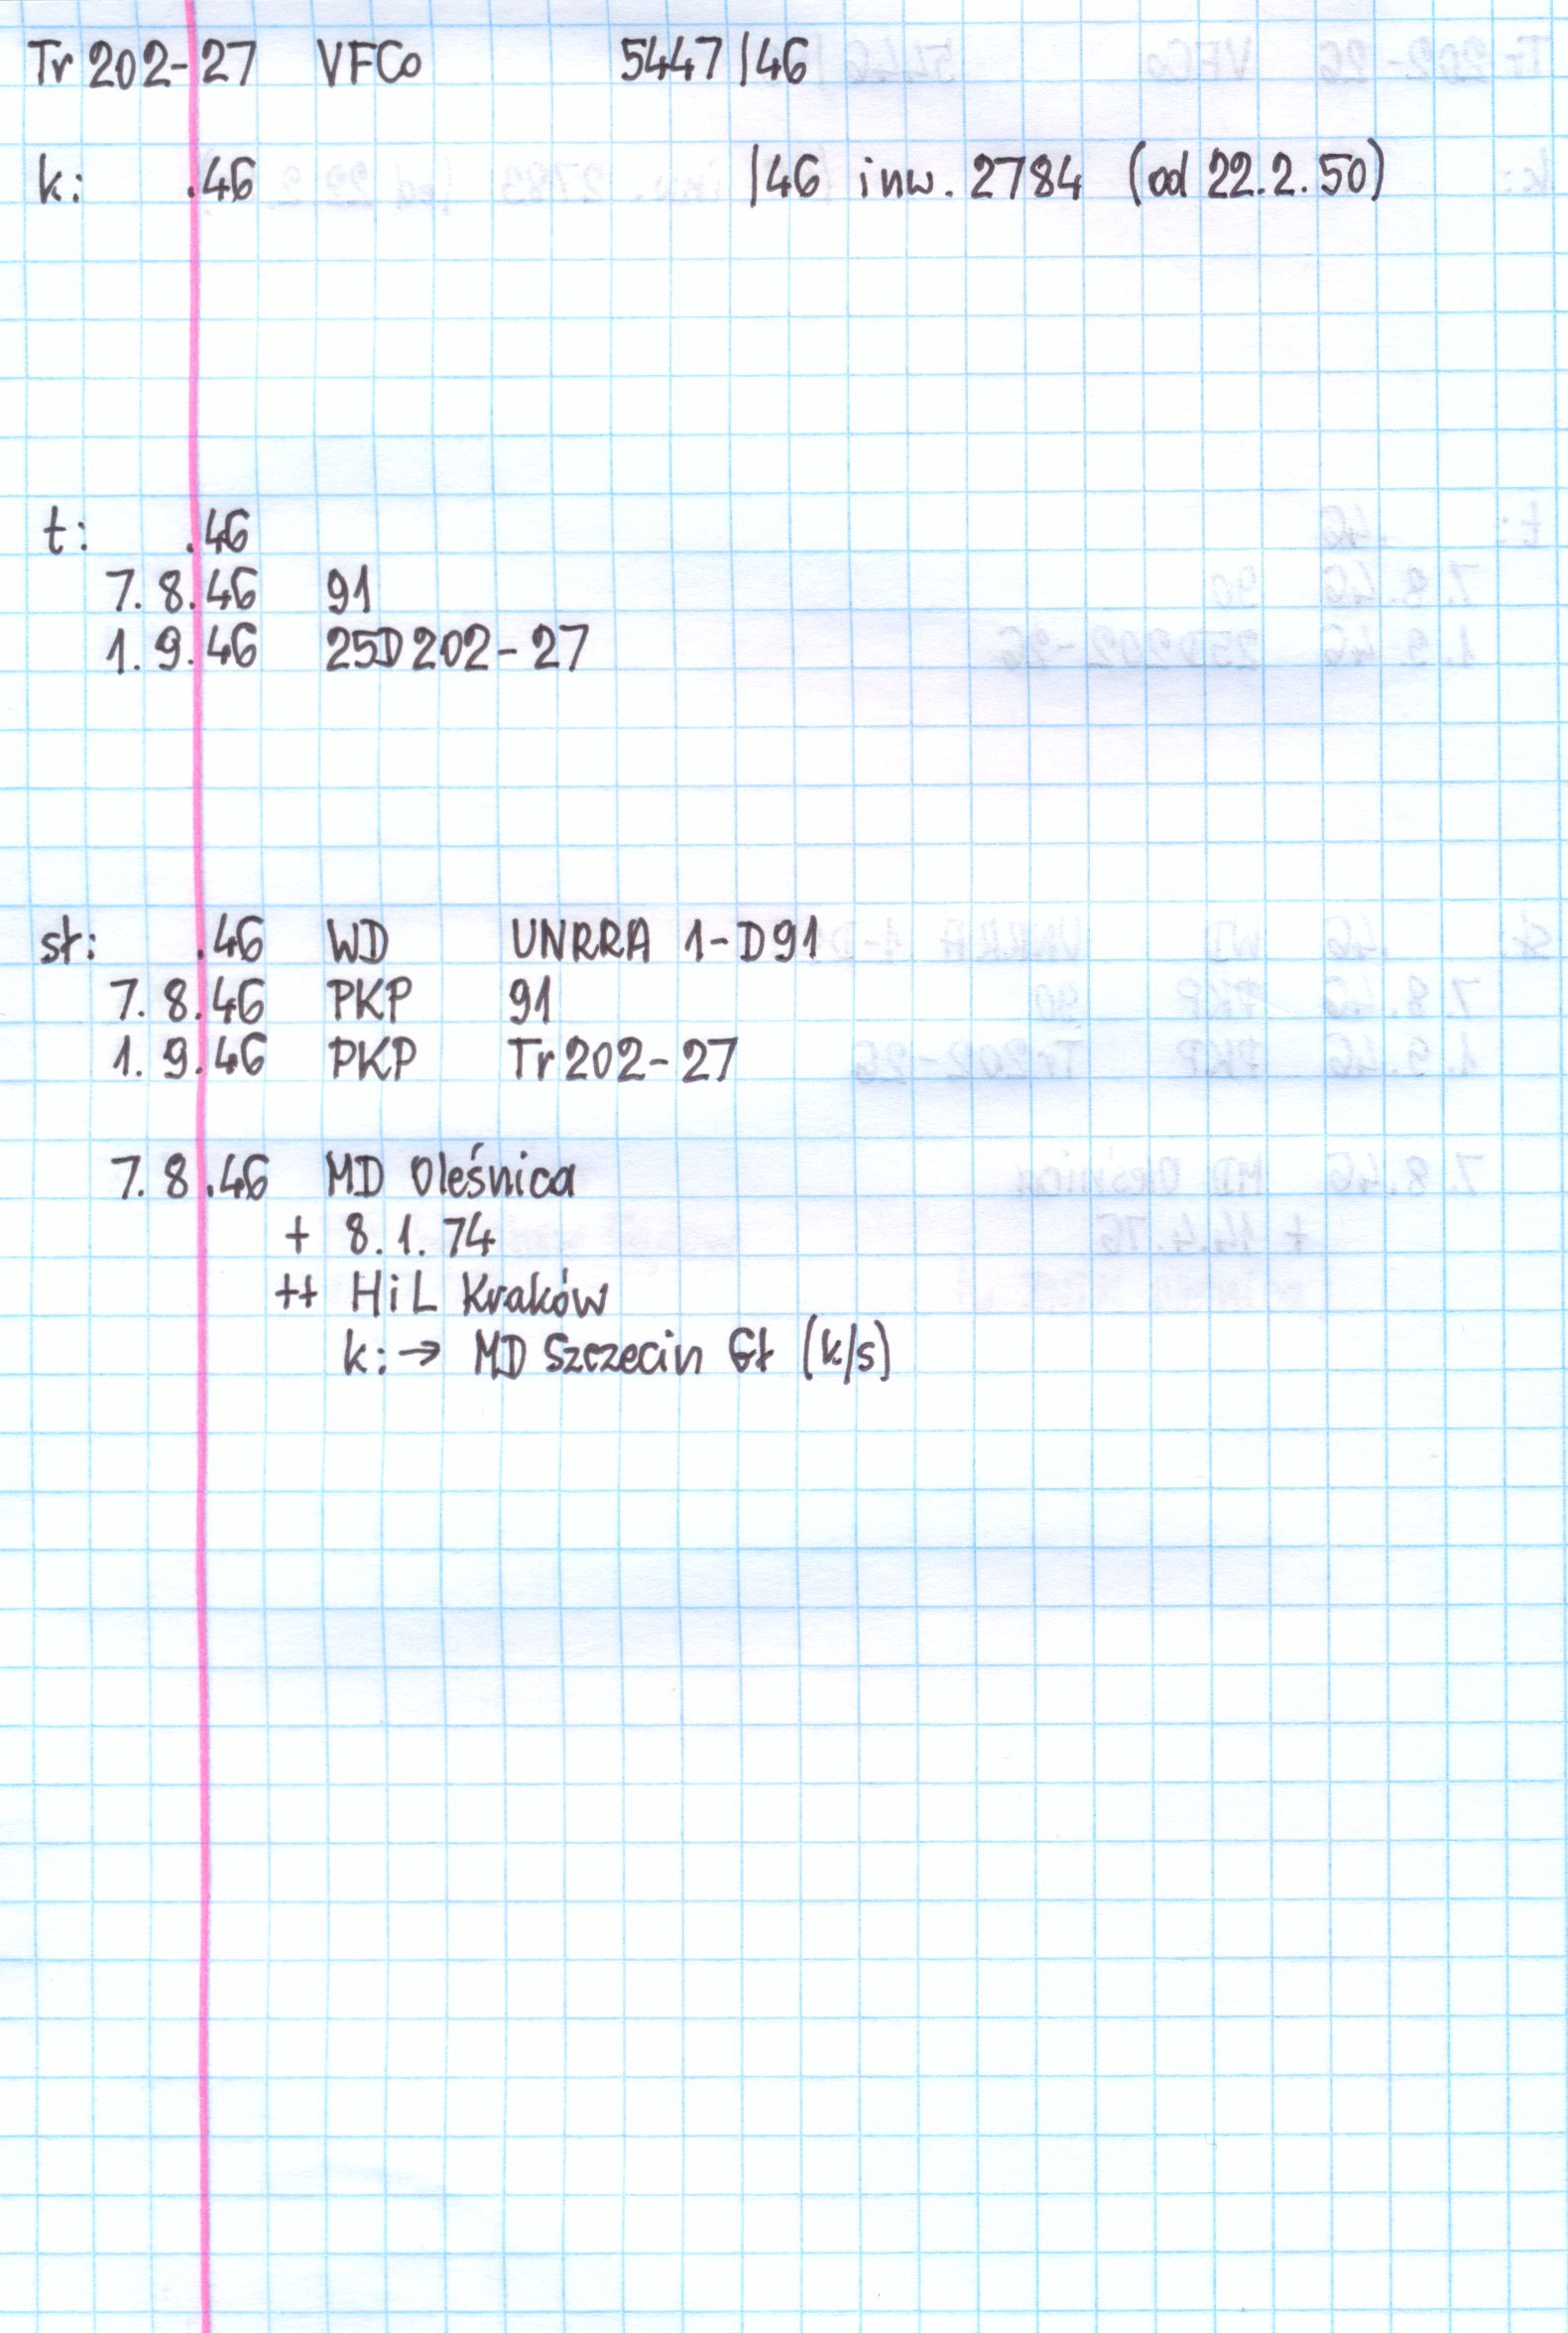 Tr 202-27 VFCo 5447/46
k: .46 /46 inw. 2784 (od 22.2.50)
t: .46
7.8.46 91
1.9.46 25D202-27
sł: .46 WD UNRRA 1-D91
7.8.46 PKP 91
1.9.46 PKP Tr202-27
7.8.46 MD Oleśnica
+ 8.1.74
++ HiL Kraków
k:→ MD Szczecin Gł (k/s)